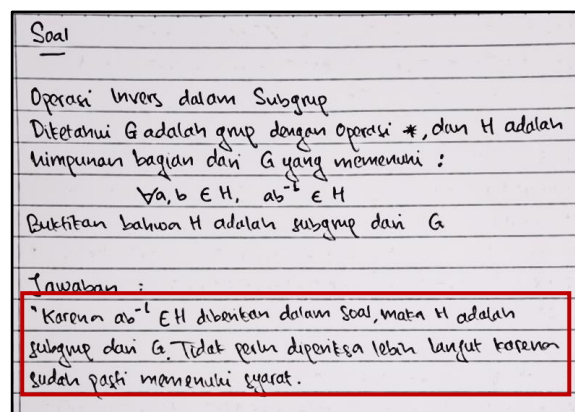 Soal
Operasi Invers dalam Subgrup
Diketahui G adalah grup dengan operasi *, dan H adalah
himpunan bagian dari G yang memenuhi :
∀a, b ∈ H, ab⁻¹ ∈ H
Buktikan bahwa H adalah subgrup dari G
Jawaban :
"Karena ab⁻¹ ∈ H diberikan dalam soal, maka H adalah
subgrup dari G. Tidak perlu diperiksa lebih lanjut karena
sudah pasti memenuhi syarat.